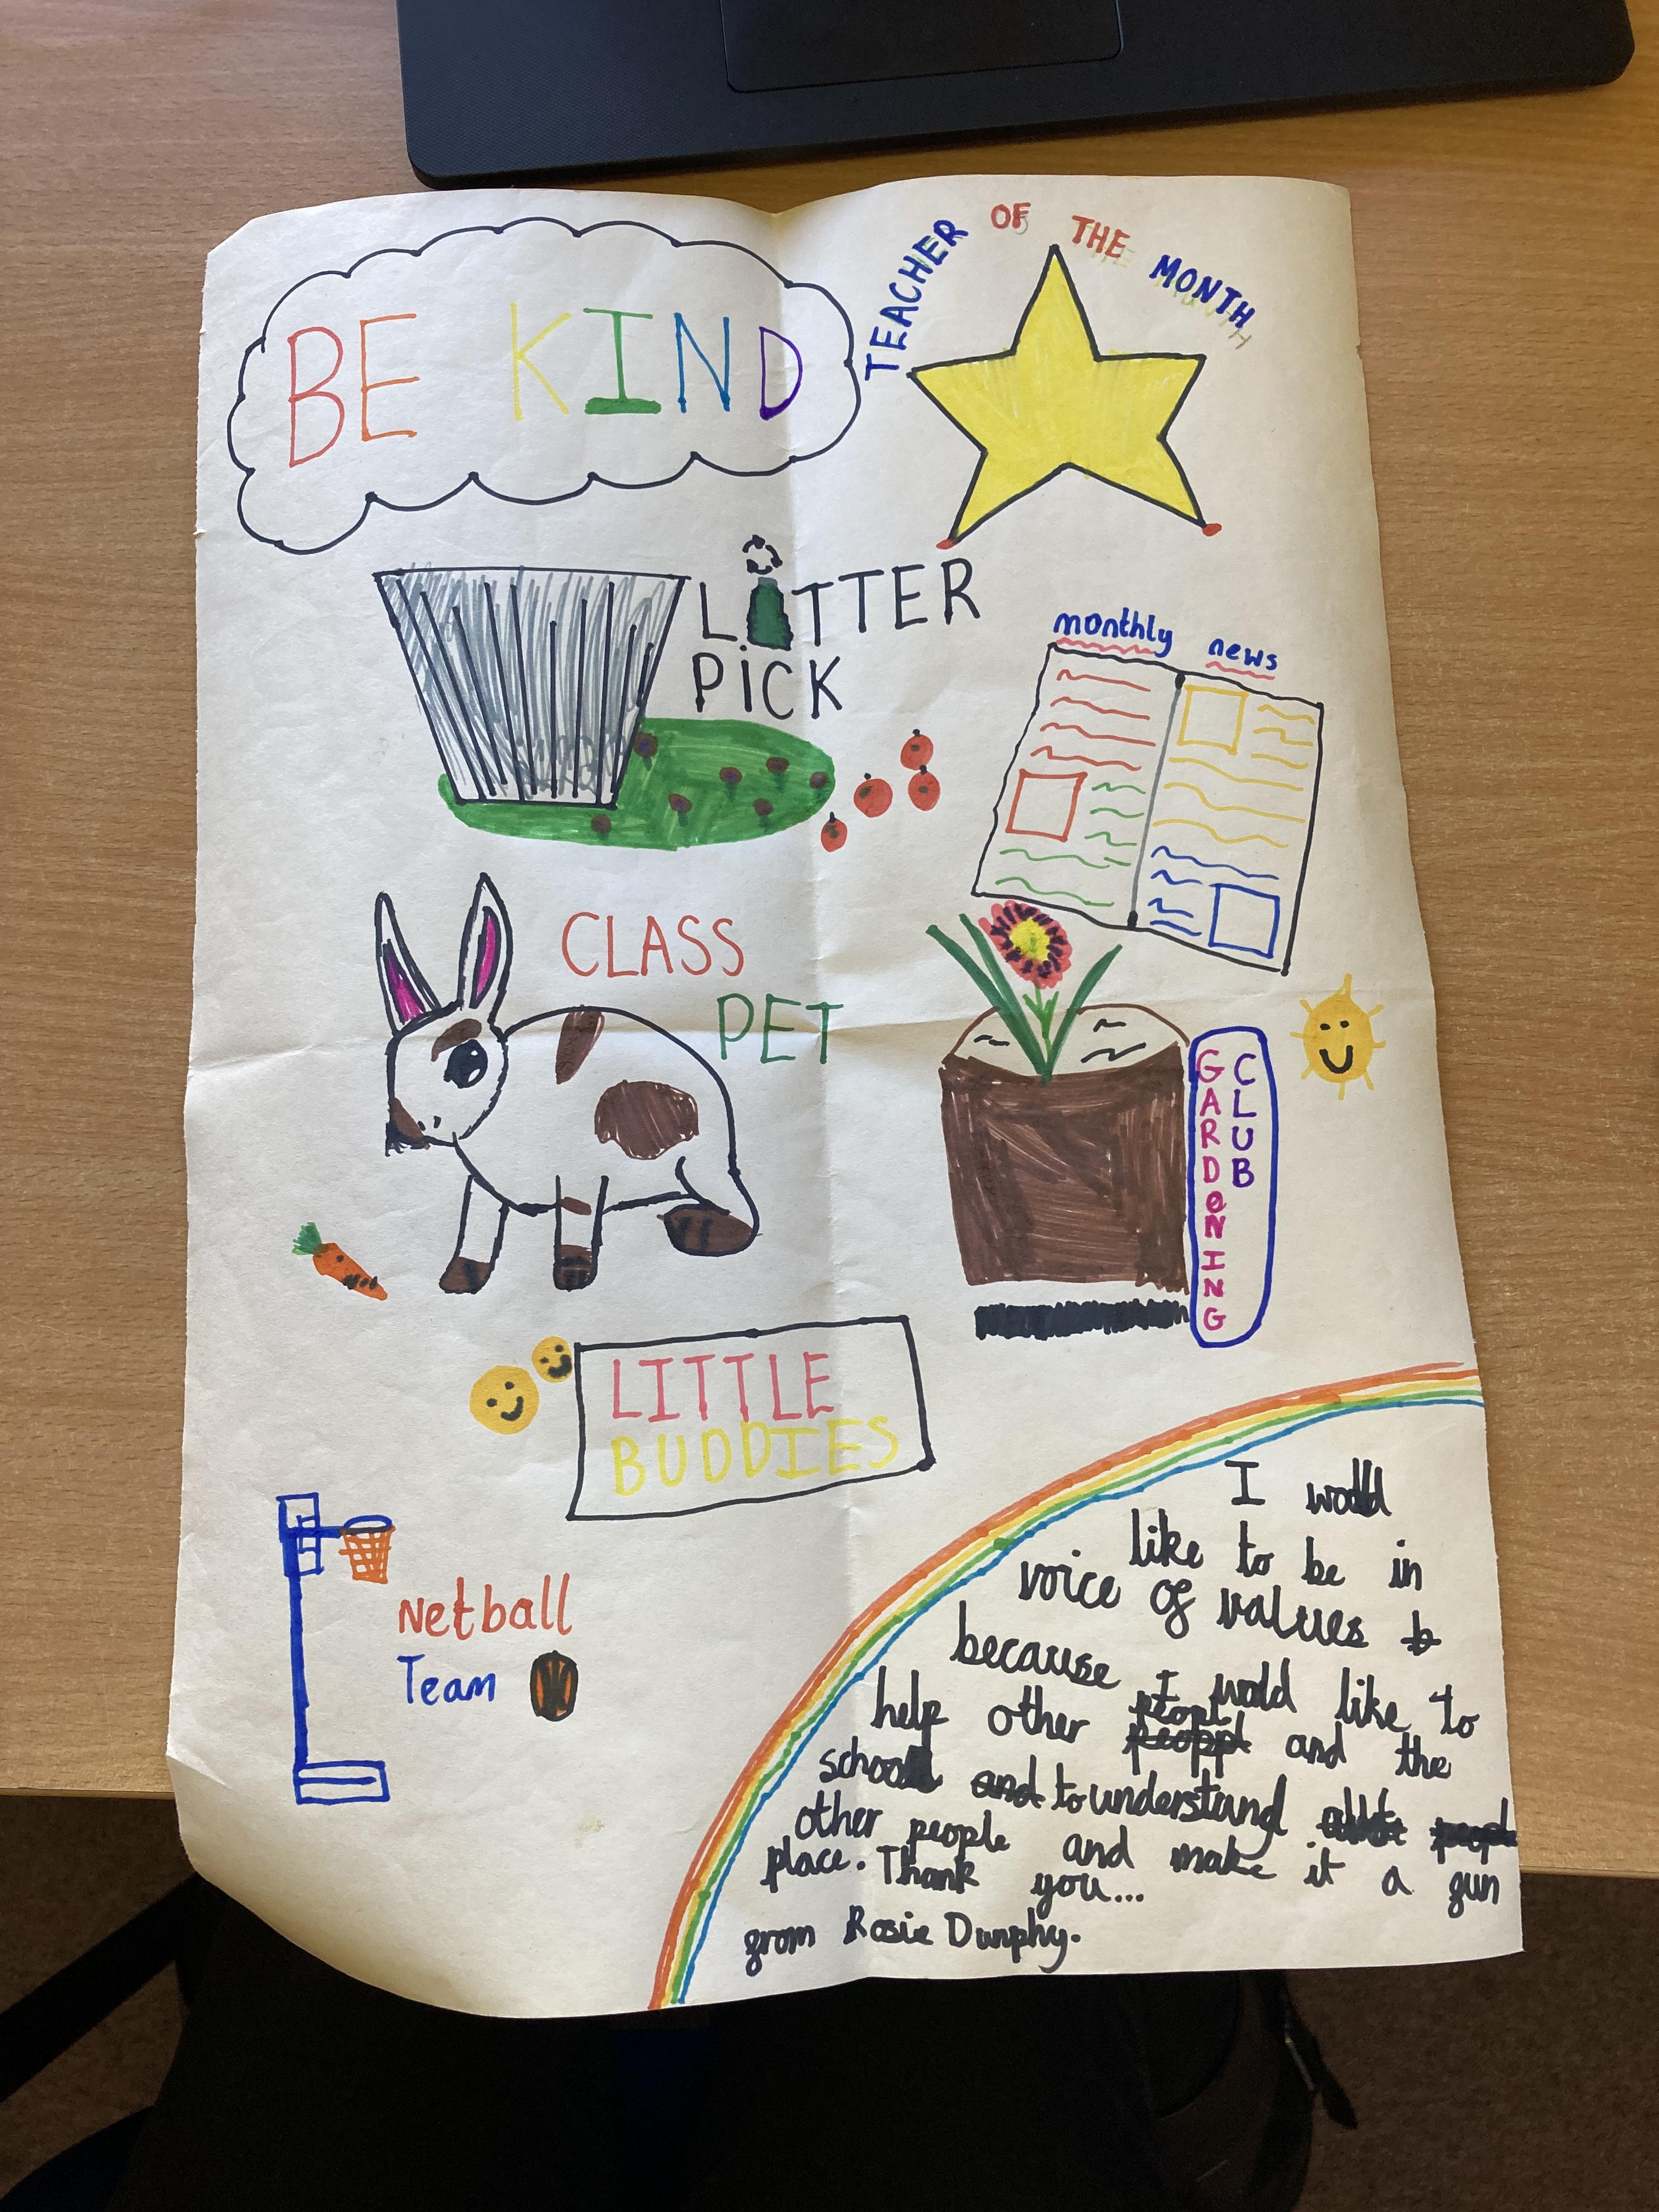 BE KIND
TEACHER OF THE MONTH
LITTER
PiCK
monthly news
CLASS
PET
GARDONING
CLUB
LITTLE
BUDDIES
Netball
Team
I would
like to be in
voice of values
because I wold like to
help other peopl and the
school to understand
other people and make it a fun
place. Thank you...
from Rosie Dunphy.